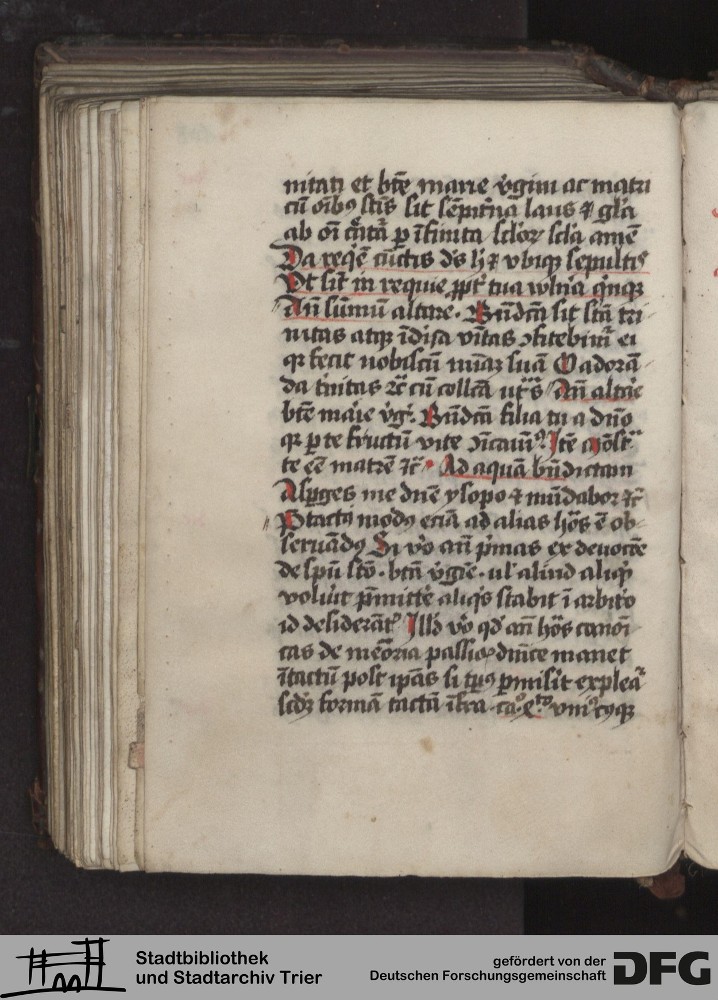 nitati et bte̅ marie v̾gini ac matri
cu̅ oi̅bꝯ sc̅is sit se̅pit̾na laus ⁊ gl̾ia
ab oi̅ c̾ͣat͛a p̲ i̅finita sclor̾ scl̾a ame̅
Da req͛e̅ cu̅ctis de̅s h̾ ⁊ vbiqꝫ sepultis
Vt sit̾ in requie p̲pt̾ tua wln̾a q̾nqꝫ
An̅ su̅mu̅ altare · Bn̅dca̅ sit sca̅ tri
nitas atqꝫ i̅diſa vn̅tas ꝯfitebim̾ ei
qꝫ fecit nobiscu̅ mia̅ꝫ sua̅ O adora̅
da t̾nitas ⁊c̅ cu̅ collca̅ ut s̾ An̅ alta͛e
bte̅ ma͛ie v̾g͛ · Bn̅dca̅ filia tu a dn̅o
qꝫ p̲ te fructu̅ vite ꝯi̅cauim̾ꝯ Ite̅
te e̅e matre̅ ⁊c̅ · Ad aqua̅ bn̅dictam
Asp̲ges me dn̅e ysopo ⁊ mu̅dabor ⁊c̅
P̾tactꝯ modꝯ ecia̅ ad alias ho̅s e̅ ob
seruandꝯ Si v̾o an̅ p̾mas ex deuoco̅e
de spu̅ sco̅ · bta̅ v̾gi̅e · ul̾ aliud aliqͥd
voluͥit p̲mitte͛ aliqͥs stabit i̅ arbit͛o
id desidera̅t̾ Ill̾d v̾o qd̾ an̅ ho̅s canoni
cas de memoria passioi̅s dni̅ce manet
i̅tactu̅ post ip̅as si tp̅ꝯ p̲mis͛it explea͛
scd̾ꝫ forma̅ tacta̅ i̅fra · ca̾ᵒ · vniͨuiqꝫ
Stadtbibliothek
und Stadtarchiv Trier
gefördert von der
Deutschen Forschungsgemeinschaft
DFG